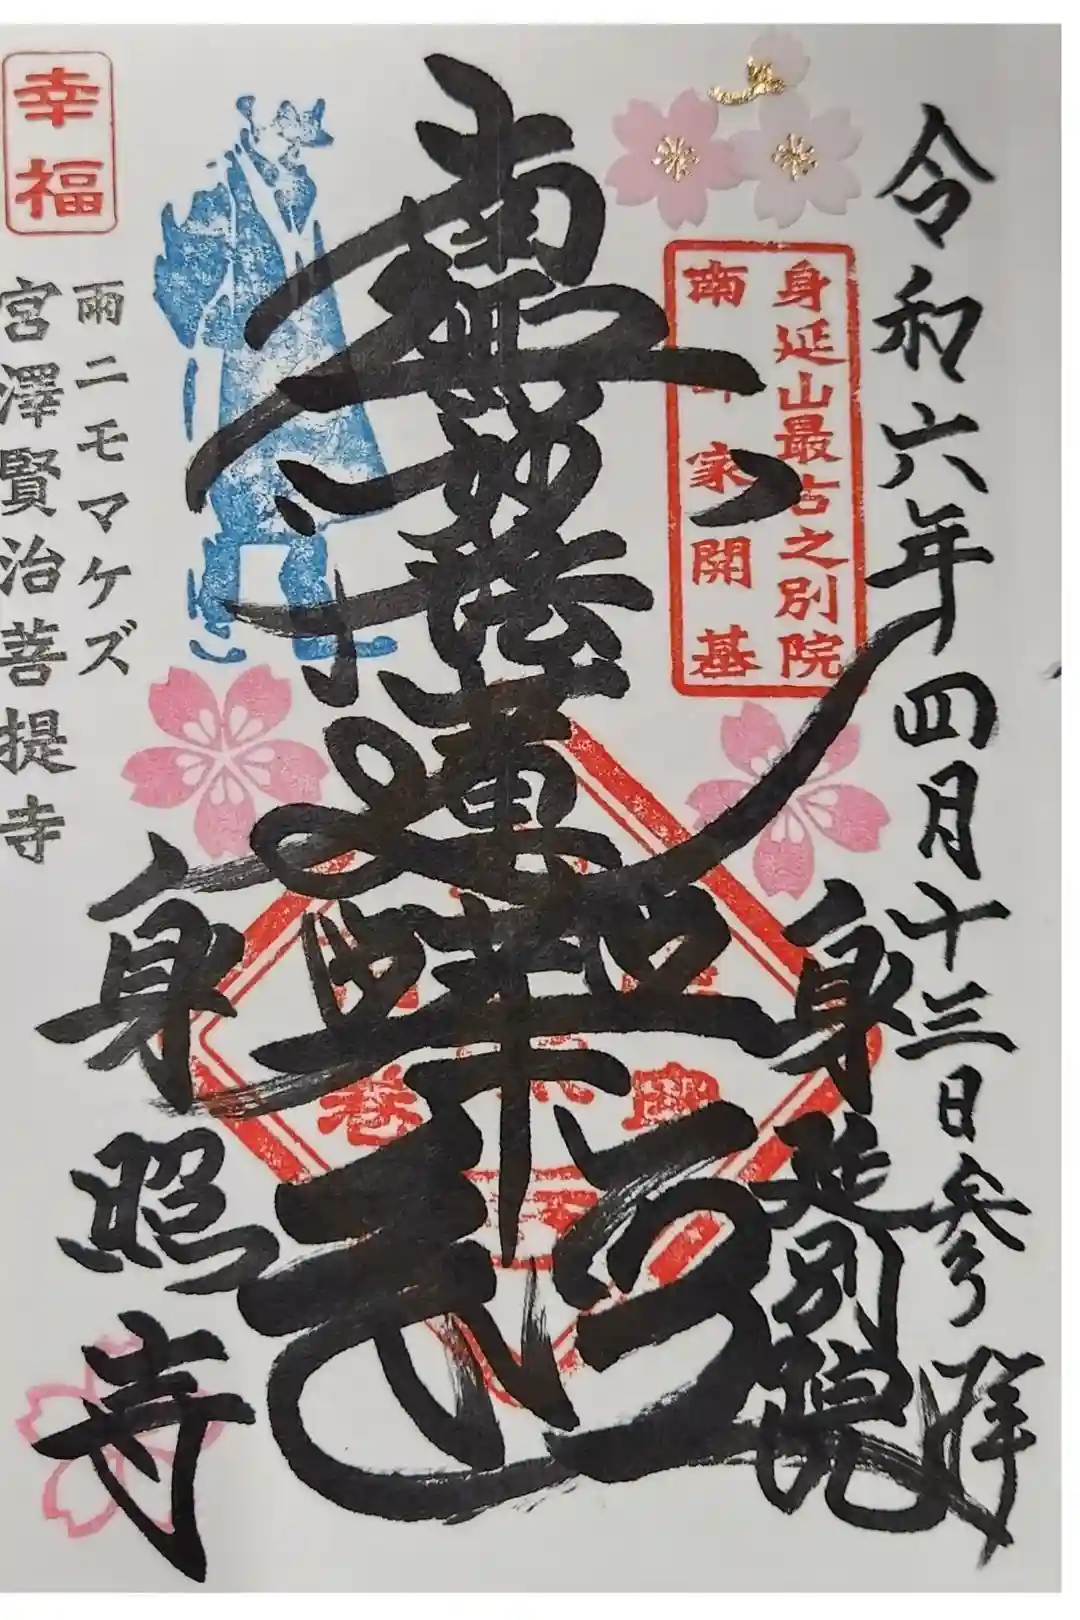 令和六年四月十三日参拝
身延別院
身延山最古之別院
南部家開基
南無妙法蓮華経
身照寺
雨ニモマケズ
宮澤賢治菩提寺
幸福